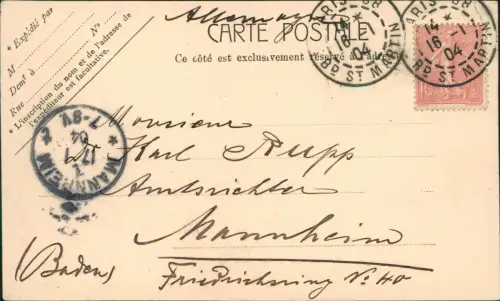 * Expédié par
M
Nº
Demt à
Rue
* L'inscription du nom et de l'adresse de
l'expéditeur est facultative.
(Allemagne)
CARTE POSTALE
Ce côté est exclusivement réservé à l'adresse
PARIS
14 * 16 -1 04
BD ST MARTIN
PARIS
14 * 16 -1 04
BD ST MARTIN
10
MANNHEIM 2
17 1 04
7-8V
Monsieur
Karl Rupp
Amtsrichter
Mannheim
(Baden)
Friedrichsring No 40